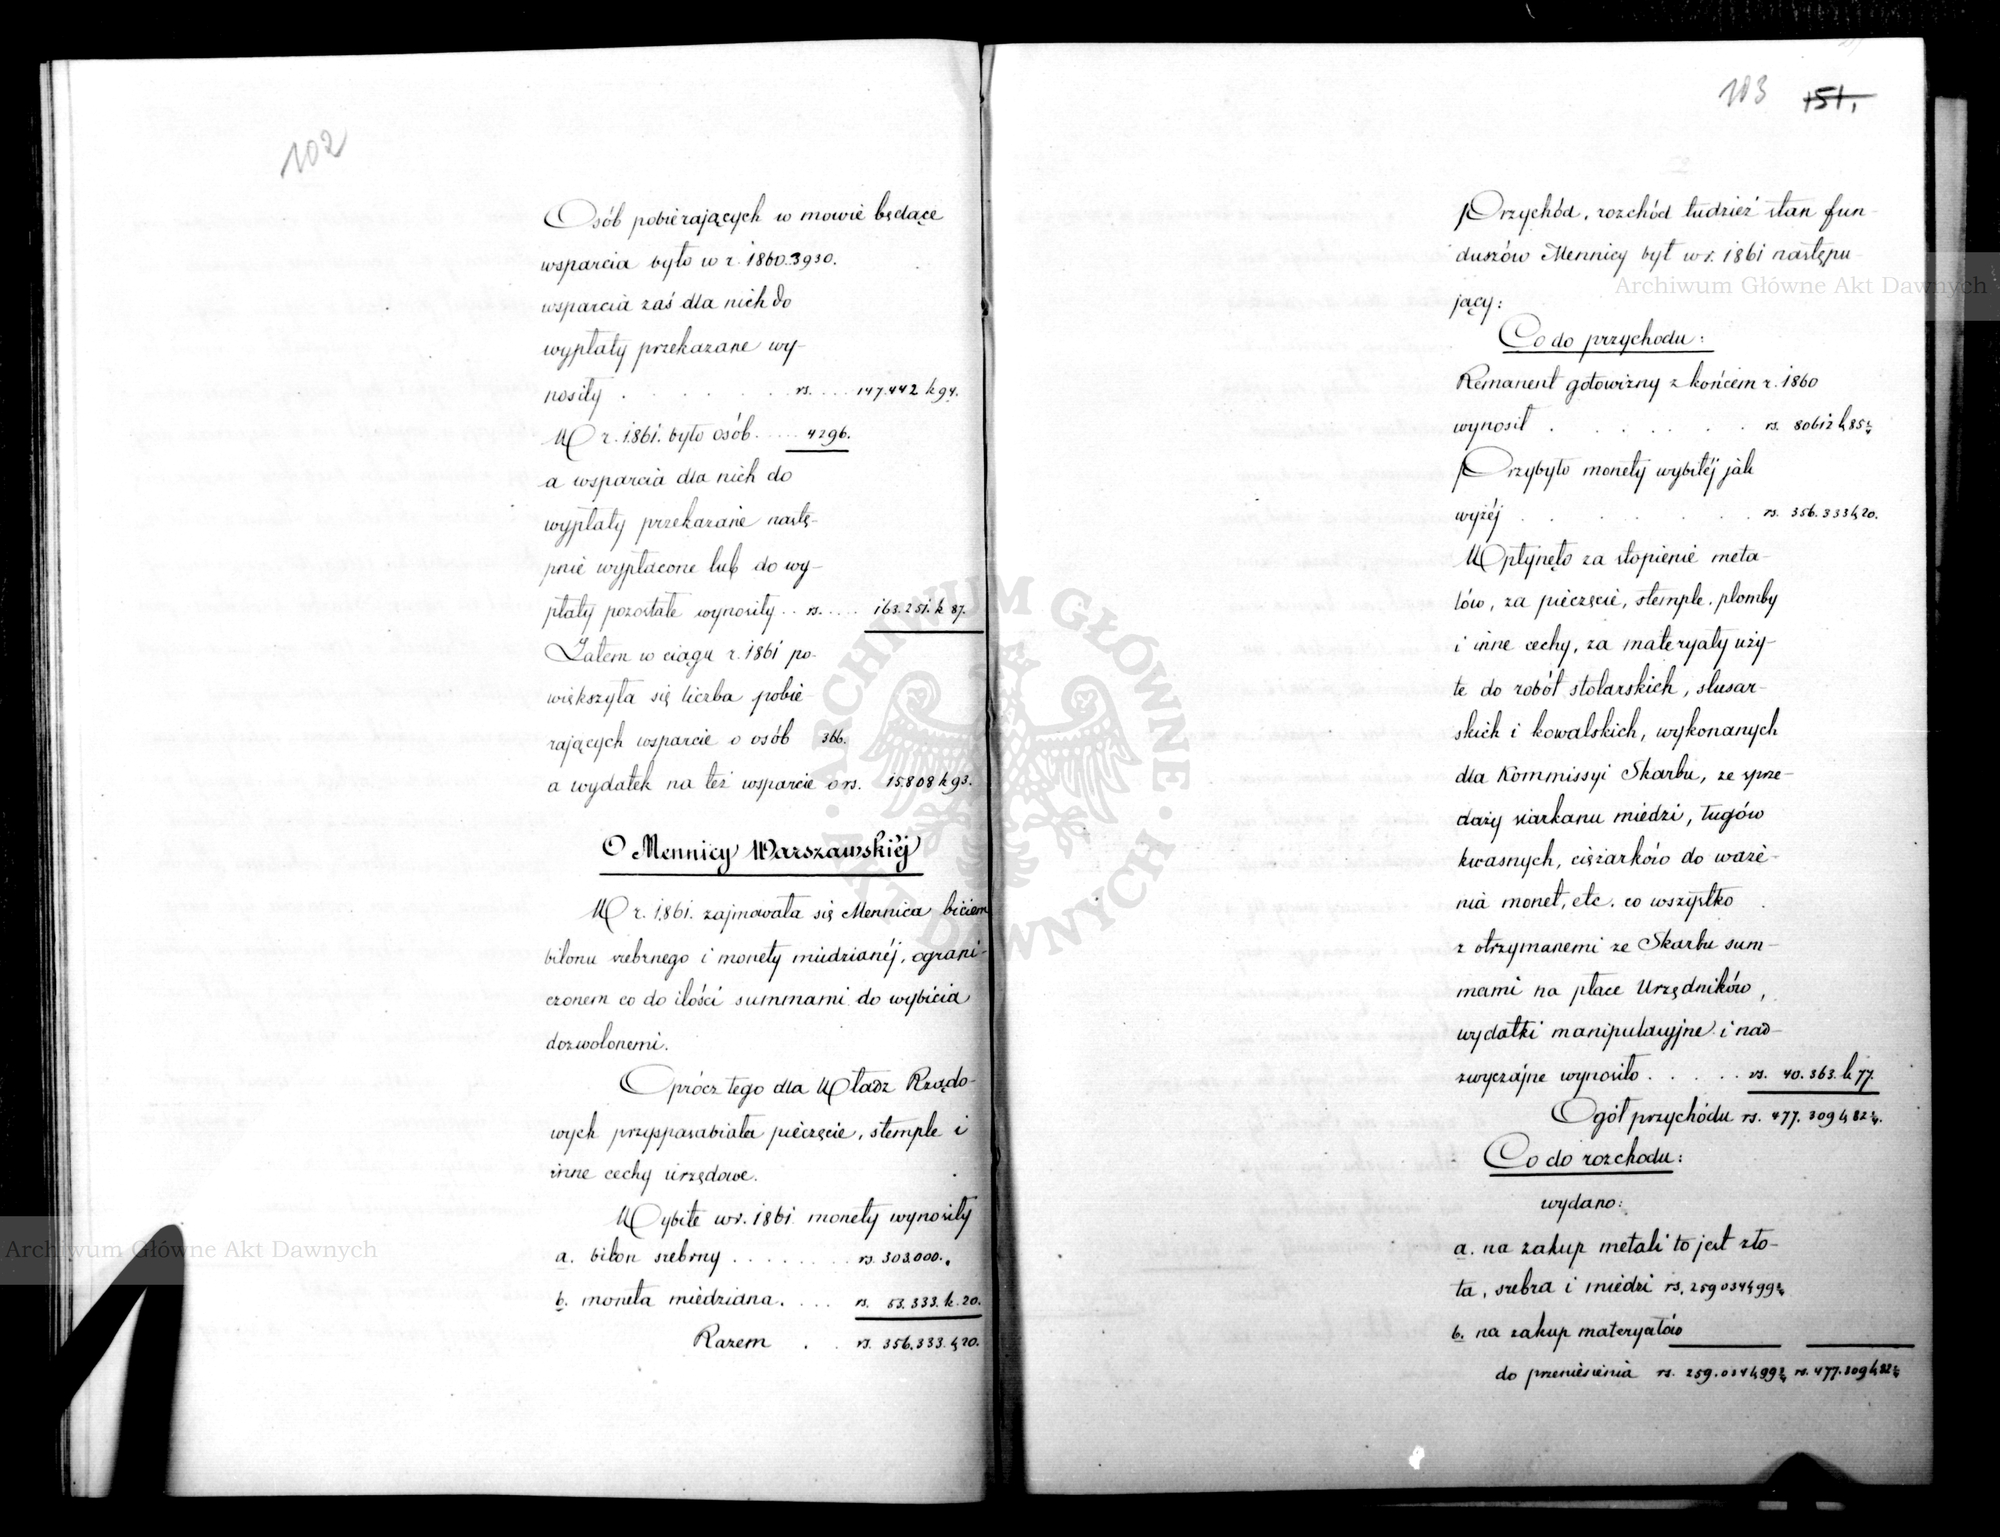 102
Osób pobierających w mowie będące
wsparcia było w r. 1860. 3930.
wsparcia zaś dla nich do
wypłaty przekazane wy-
nosiły . . . . . . . rs. . . . 147.442 k 94.
W r. 1861. było osób . . . . . 4296.
a wsparcia dla nich do
wypłaty przekazane nastę-
pnie wypłacone lub do wy-
płaty pozostałe wynosiły . . rs. . . . . 163.251. k 87.
Zatem w ciągu r. 1861 po-
większyła się liczba pobie-
rających wsparcie o osób 366.
a wydatek na też wsparcie o rs. 15.808 k 93.
O Mennicy Warszawskiéj
W r. 1861. zajmowała się Mennica biciem
bilonu srebrnego i monety miedzianéj, ograni-
czonem co do ilości summami do wybicia
dozwolonemi.
Oprócz tego dla Władz Rządo-
wych przysposabiała pieczęcie, stemple i
inne cechy urzędowe.
Wybite w r. 1861 monety wynosiły
a. bilon srebrny . . . . . . . . rs. 303.000.
b. moneta miedziana. . . . . rs. 53.333. k. 20.
Razem . . . rs. 356.333. k 20.
103 151.
Przychód, rozchód tudzież stan fun-
duszów Mennicy był w r. 1861 następu-
jący:
Co do przychodu:
Remanent gotowizny z końcem r. 1860
wynosił . . . . . . . rs. 80612 k 85
Przybyło monety wybitéj jak
wyżéj . . . . . . . rs. 356.333 k 20.
Wpłynęło za stopienie meta-
lów, za pieczęcie, stemple, plomby
i inne cechy, za materyały uży-
te do robót stolarskich, slusar-
skich i kowalskich, wykonanych
dla Kommissyi Skarbu, ze sprze-
daży siarkanu miedzi, ługów
kwasnych, ciężarków do waże-
nia monet, etc. co wszystko
z otrzymanemi ze Skarbu sum-
mami na płace Urzędników,
wydatki manipulacyjne i nad-
zwyczajne wynosiło . . . . . rs. 40.363. k 77.
Ogół przychódu rs. 477.309 k 82
Co do rozchodu:
wydano:
a. na zakup metali to jest zło-
ta, srebra i miedzi rs. 259034 k 99
b. na zakup materyałów
do przeniesienia rs. 259.034 k 99 rs. 477.309 k 82
Archiwum Główne Akt Dawnych
Archiwum Główne Akt Dawnych
ARCHIWUM GŁÓWNE · AKT DAWNYCH ·